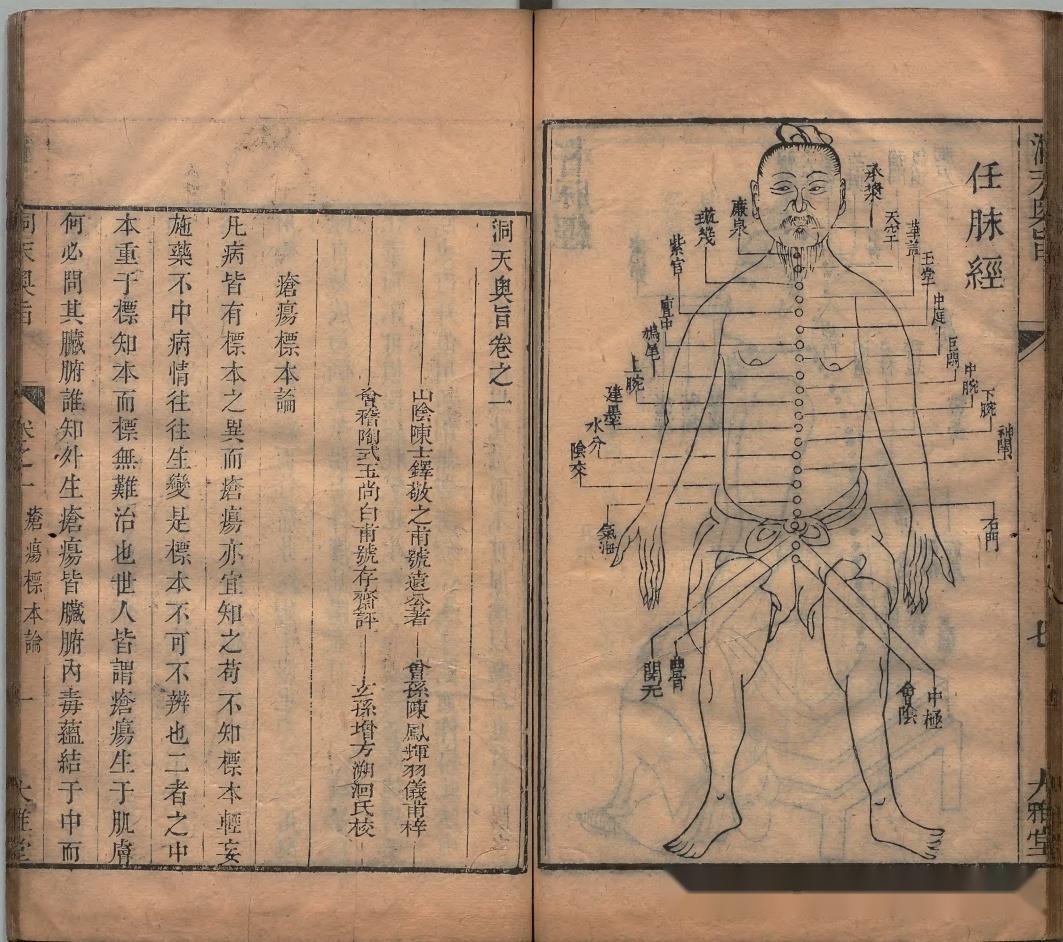 任脉經
承槳
天突
華蓋
玉堂
中庭
巨闕
中脘
下脘
神闕
石門
中極
會陰
廉泉
璇璣
紫宫
膻中
鳩尾
上脘
建里
水分
陰交
氣海
曲骨
関元
七
大雅堂
洞天奥旨卷之一
山陰陳士鐸敬之甫號遠公著 曾孫陳鳳輝羽儀甫梓
會稽陶式玉尚白甫號存齋評 玄孫增方朔洄氏校
瘡瘍標本論
凡病皆有標本之異而瘡瘍亦宜知之苟不知標本輕妄
施藥不中病情往往生變是標本不可不辨也二者之中
本重于標知本而標無難治也世人皆謂瘡瘍生于肌膚
何必問其臟腑誰知外生瘡瘍皆臟腑內毒蘊結于中而
洞天奥旨 卷之一 瘡瘍標本論 一 大雅堂